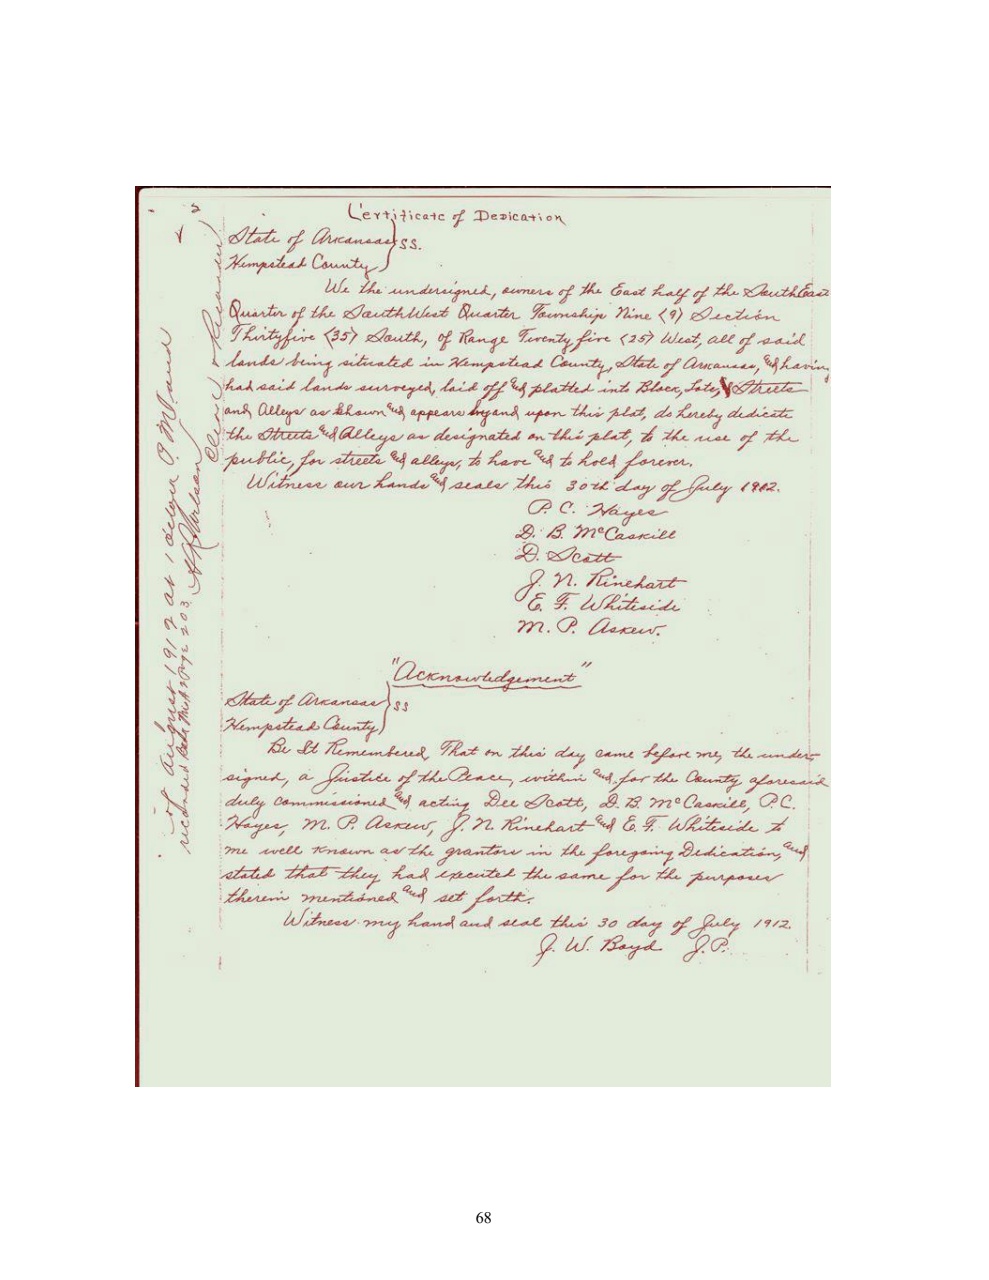 Certificate of Dedication
State of Arkansas } SS.
Hempstead County
We the undersigned, owners of the East half of the SouthEast
Quarter of the SouthWest Quarter Township Nine (9) Section
Thirtyfive (35) South, of Range Twenty five (25) West, all of said
lands being situated in Hempstead County, State of Arkansas, and having
had said lands surveyed, laid off and platted into Block, Lots, & Streets
and Alleys as shown and appears by and upon this plat, do hereby dedicate
the Streets and Alleys as designated on this plat, to the use of the
public, for streets and alleys, to have and to hold forever.
Witness our hands and seals this 30th day of July 1912.
P. C. Hayes
D. B. McCaskill
D. Scott
J. N. Rinehart
E. F. Whiteside
M. P. Askew.
"Acknowledgement"
State of Arkansas } SS
Hempstead County
Be It Remembered, That on this day came before me, the under-
signed, a Justice of the Peace, within and for the County aforesaid
duly commissioned and acting Dee Scott, D. B. McCaskill, P.C.
Hayes, M. P. Askew, J. N. Rinehart and E. F. Whiteside to
me well known as the grantors in the foregoing Dedication, and
stated that they had executed the same for the purposes
therein mentioned and set forth.
Witness my hand and seal this 30 day of July 1912.
J. W. Boyd J.P.
of August 1912 at 1 oclock P. M. and
recorded Page 203
68